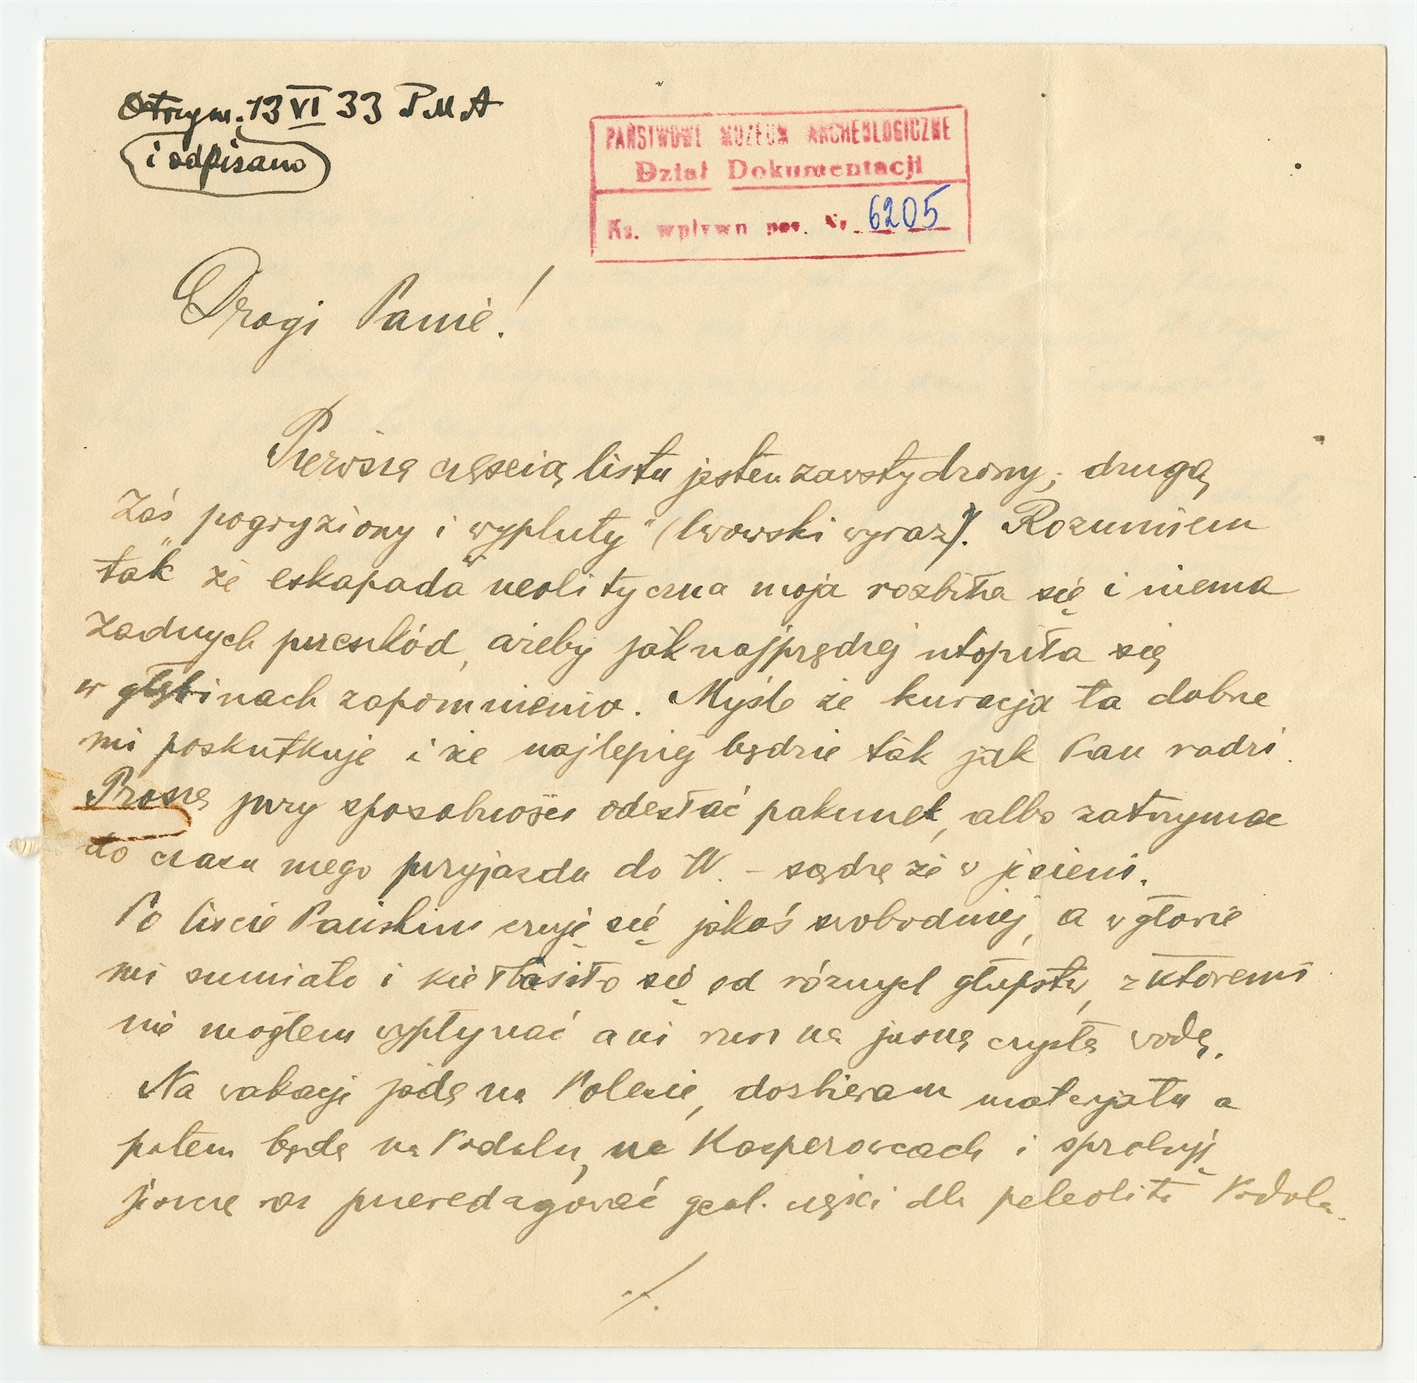 Otrzym. 13 VI 33 PMA
i odpisano
PAŃSTWOWE MUZEUM ARCHEOLOGICZNE
Dział Dokumentacji
Ks. wpływu poz. Nr. 6205
Drogi Panie!
Pierwszą częścią listu jestem zawstydzony, drugą
zaś pogryziony i „wypluty" (lwowski wyraz). Rozumiem
tak że eskapada neolityczna moja rozbiła się i niema
żadnych przeszkód, ażeby jaknajprędzej utopiła się
w głębinach zapomnienia. Myślę że kuracja ta dobrze
mi poskutkuje i że najlepiej będzie tak jak Pan radzi.
Proszę przy sposobności odesłać pakunek, albo zatrzymać
do czasu mego przyjazdu do W. – sądzę że w jesieni.
Po liście Pańskim czuję się jakoś swobodniej, a w głowie
mi szumiało i kiełbasiło się od różnych głupstw, z któremi
nie mogłem wypłynąć ani rusz na jasną czystą wodę.
Na wakacje jadę na Polesie, dozbieram materjału a
potem będę na Podolu, na Kasperowcach i spróbuję
jeszcze raz przeredagować geol. części dla paleolitu Podola.
./.